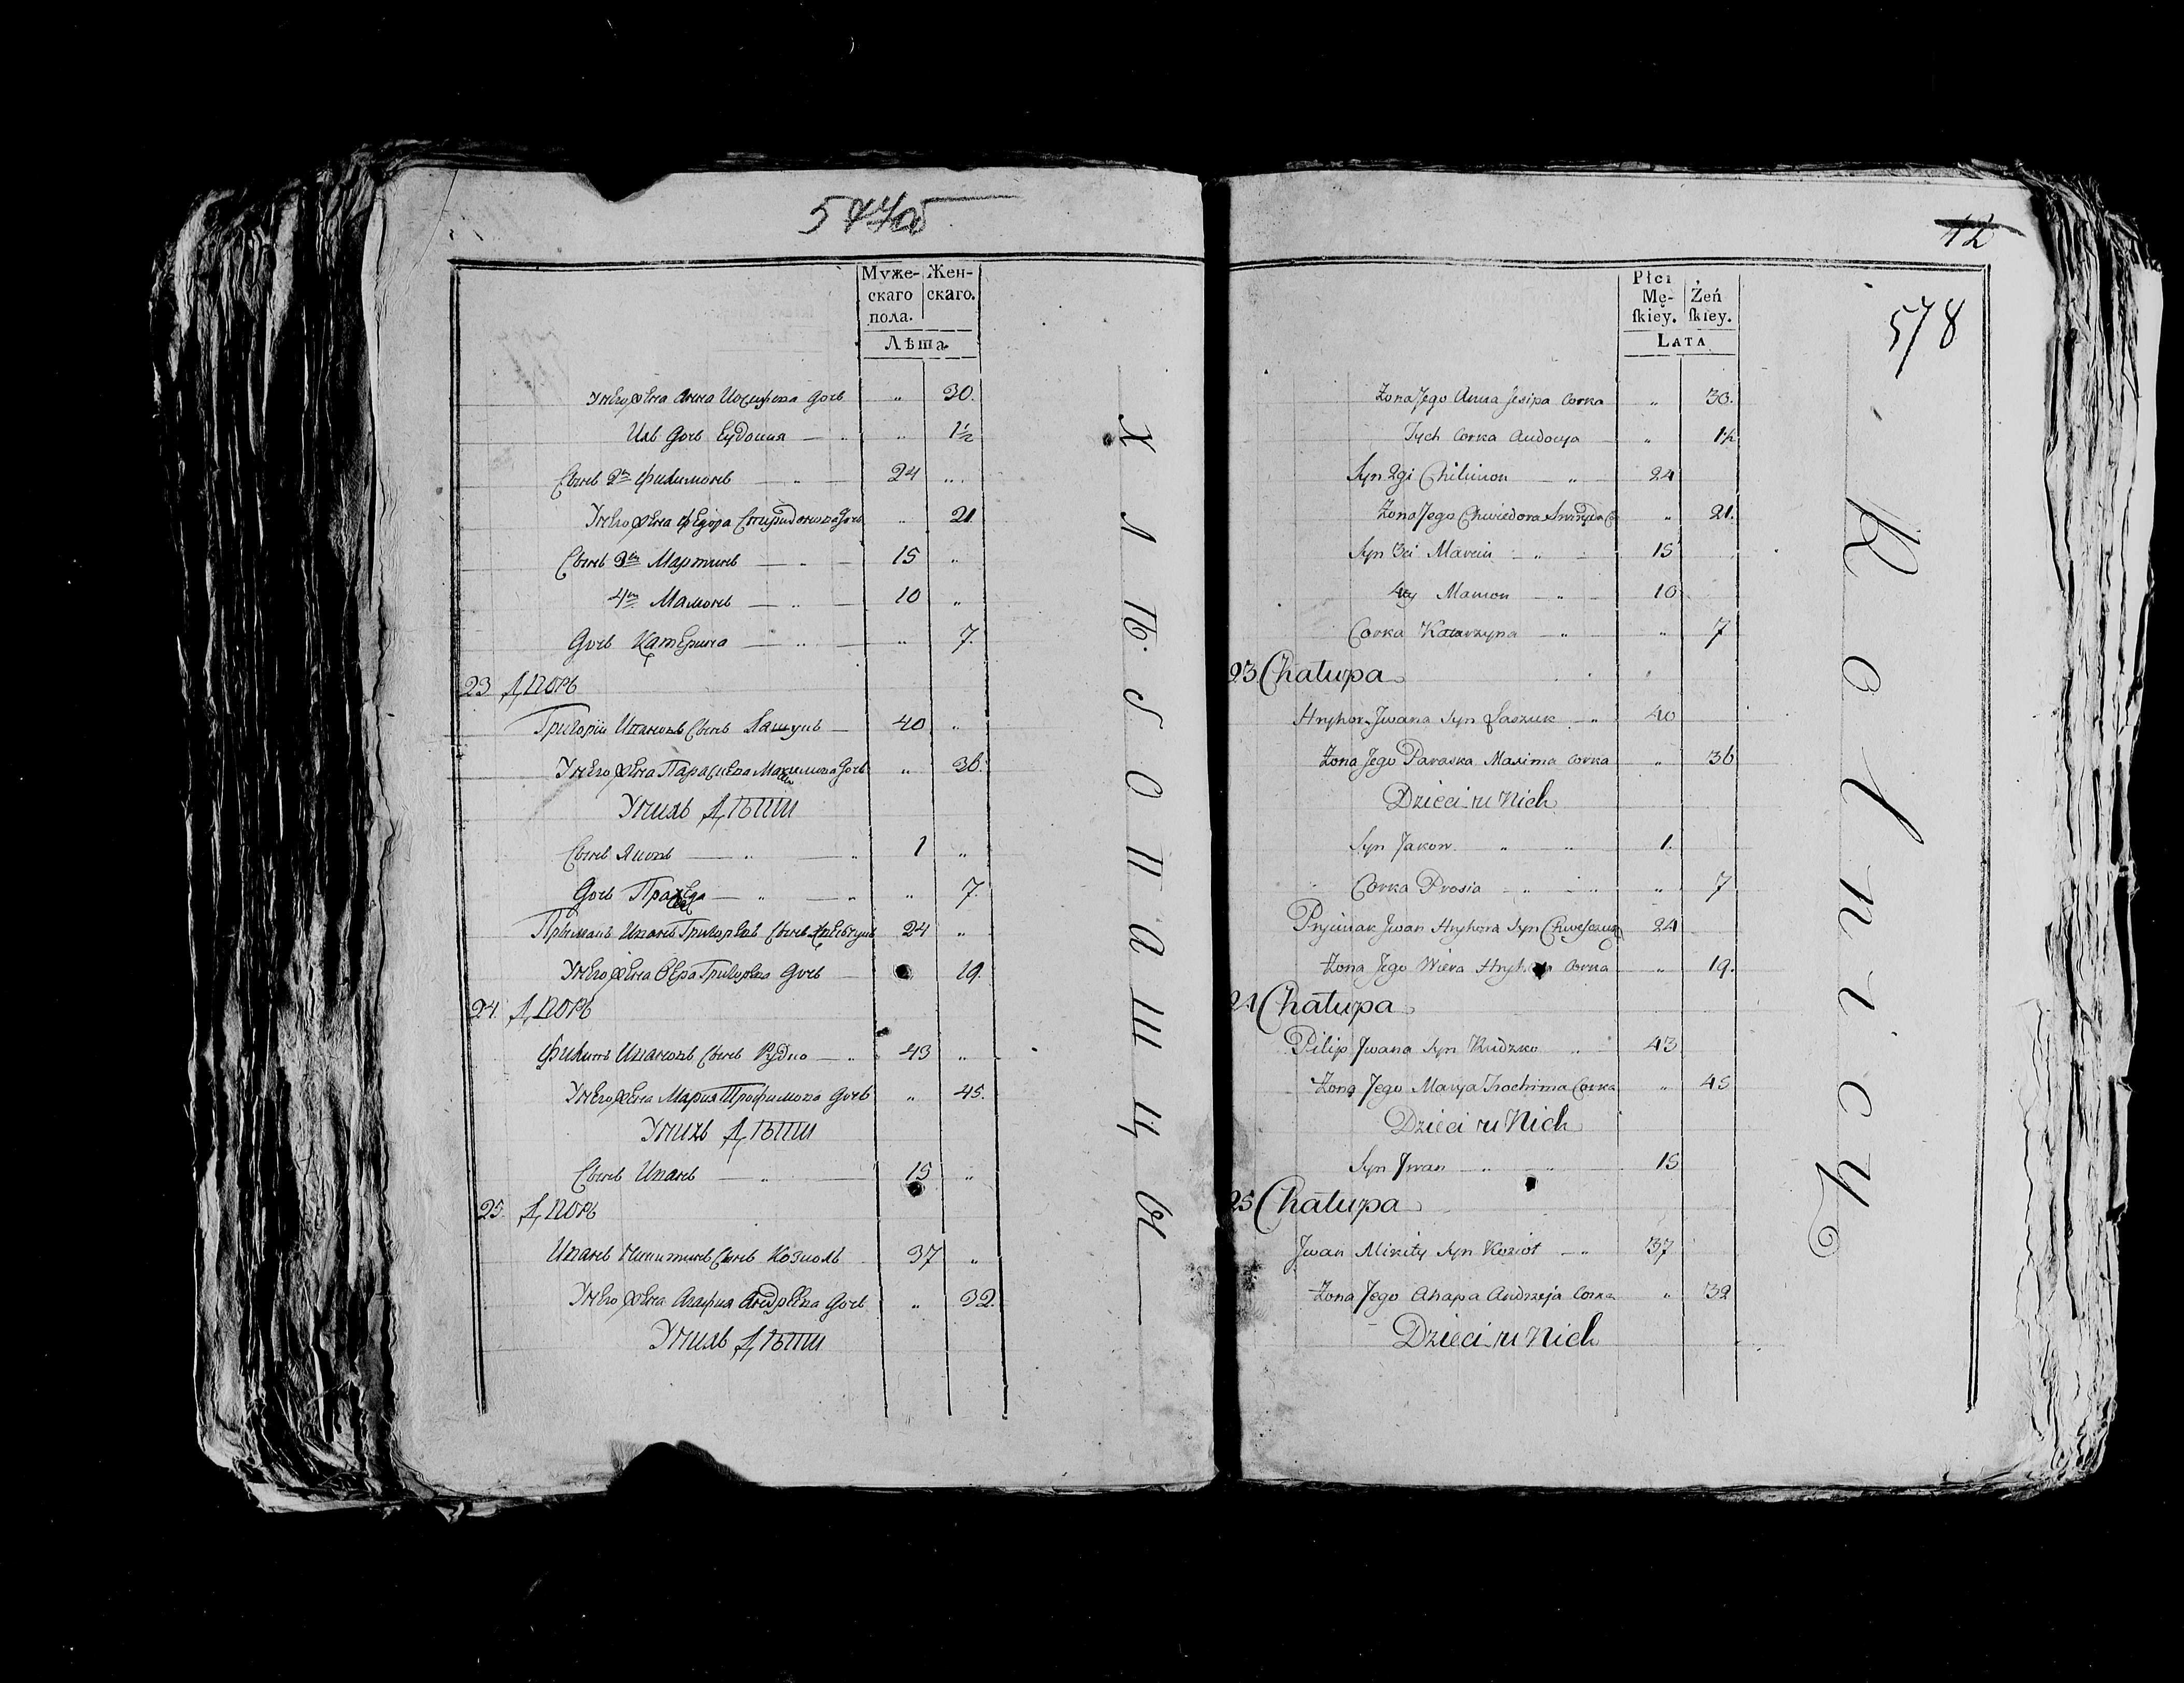 Муже- Жен-
скаго скаго.
пола.
Лѣта
У него жена Анна Иосифова дочь " 30.
Ихъ дочь Еудокия — " " 1½
Сынъ 2й Филимонъ — " — 24 "
У него жена Федора Спиридонова дочь " 21
Сынъ 3й Мартинъ — " — 15 "
4й Мамонъ — " — 10 "
Дочь Катерина — " — " 7.
23 Дворъ
Григорий Ивановъ сынъ Лашукъ — 40 "
У него жена Параскева Максимова дочь " 36.
У нихъ Дѣти
Сынъ Яковъ — " — " 1 "
Дочь — " — " " 7.
Прымакъ Иванъ Григорьевъ сынъ 24 "
У него жена Вера Григорьева дочь — 19.
24. Дворъ
Филипъ Ивановъ сынъ Рудко — " 43 "
У него жена Мария Трофимова дочь " 45.
У нихъ Дѣти
Сынъ Иванъ — " — 15 "
25. Дворъ
Иванъ Никитинъ сынъ Козиолъ 37 "
У него жена Агафия Андреева дочь " 32.
У нихъ Дѣти
Хлѣбопашцы
12
578
Płci
Mę- Żeń
ſkiey. ſkiey.
LATA
Żona Jego Anna Jesipa Corka " 30.
Tych Corka Audocya — " 1½
Syn 2gi Chilimon — " — 24
Żona Jego Chwiedora " 21.
Syn 3ci Marcin — " — 15
4ty Mamon — " — 10
Corka Katarzyna — " " 7
23 Chałupa
Hryhor Jwana Syn Łaszuk — " 40
Żona Jego Paraska Maxima Corka " 36
Dzieci u Nich
Syn Jakow " " 1.
Corka Prosia — " — " " 7
Pryimak Jwan Hryhora Syn 24
Żona Jego Wiera Hryhora Corka — " 19.
24 Chałupa
Pilip Jwana Syn Rudzko " 43
Żona Jego Marya Trochima Corka " 45
Dzieci u Nich
Syn Jwan — " — " 15
25 Chałupa
Jwan Mikity Syn Kozioł — " 37
Żona Jego Ahapa Andrzeja Corka " 32
Dzieci u Nich
Rolnicy